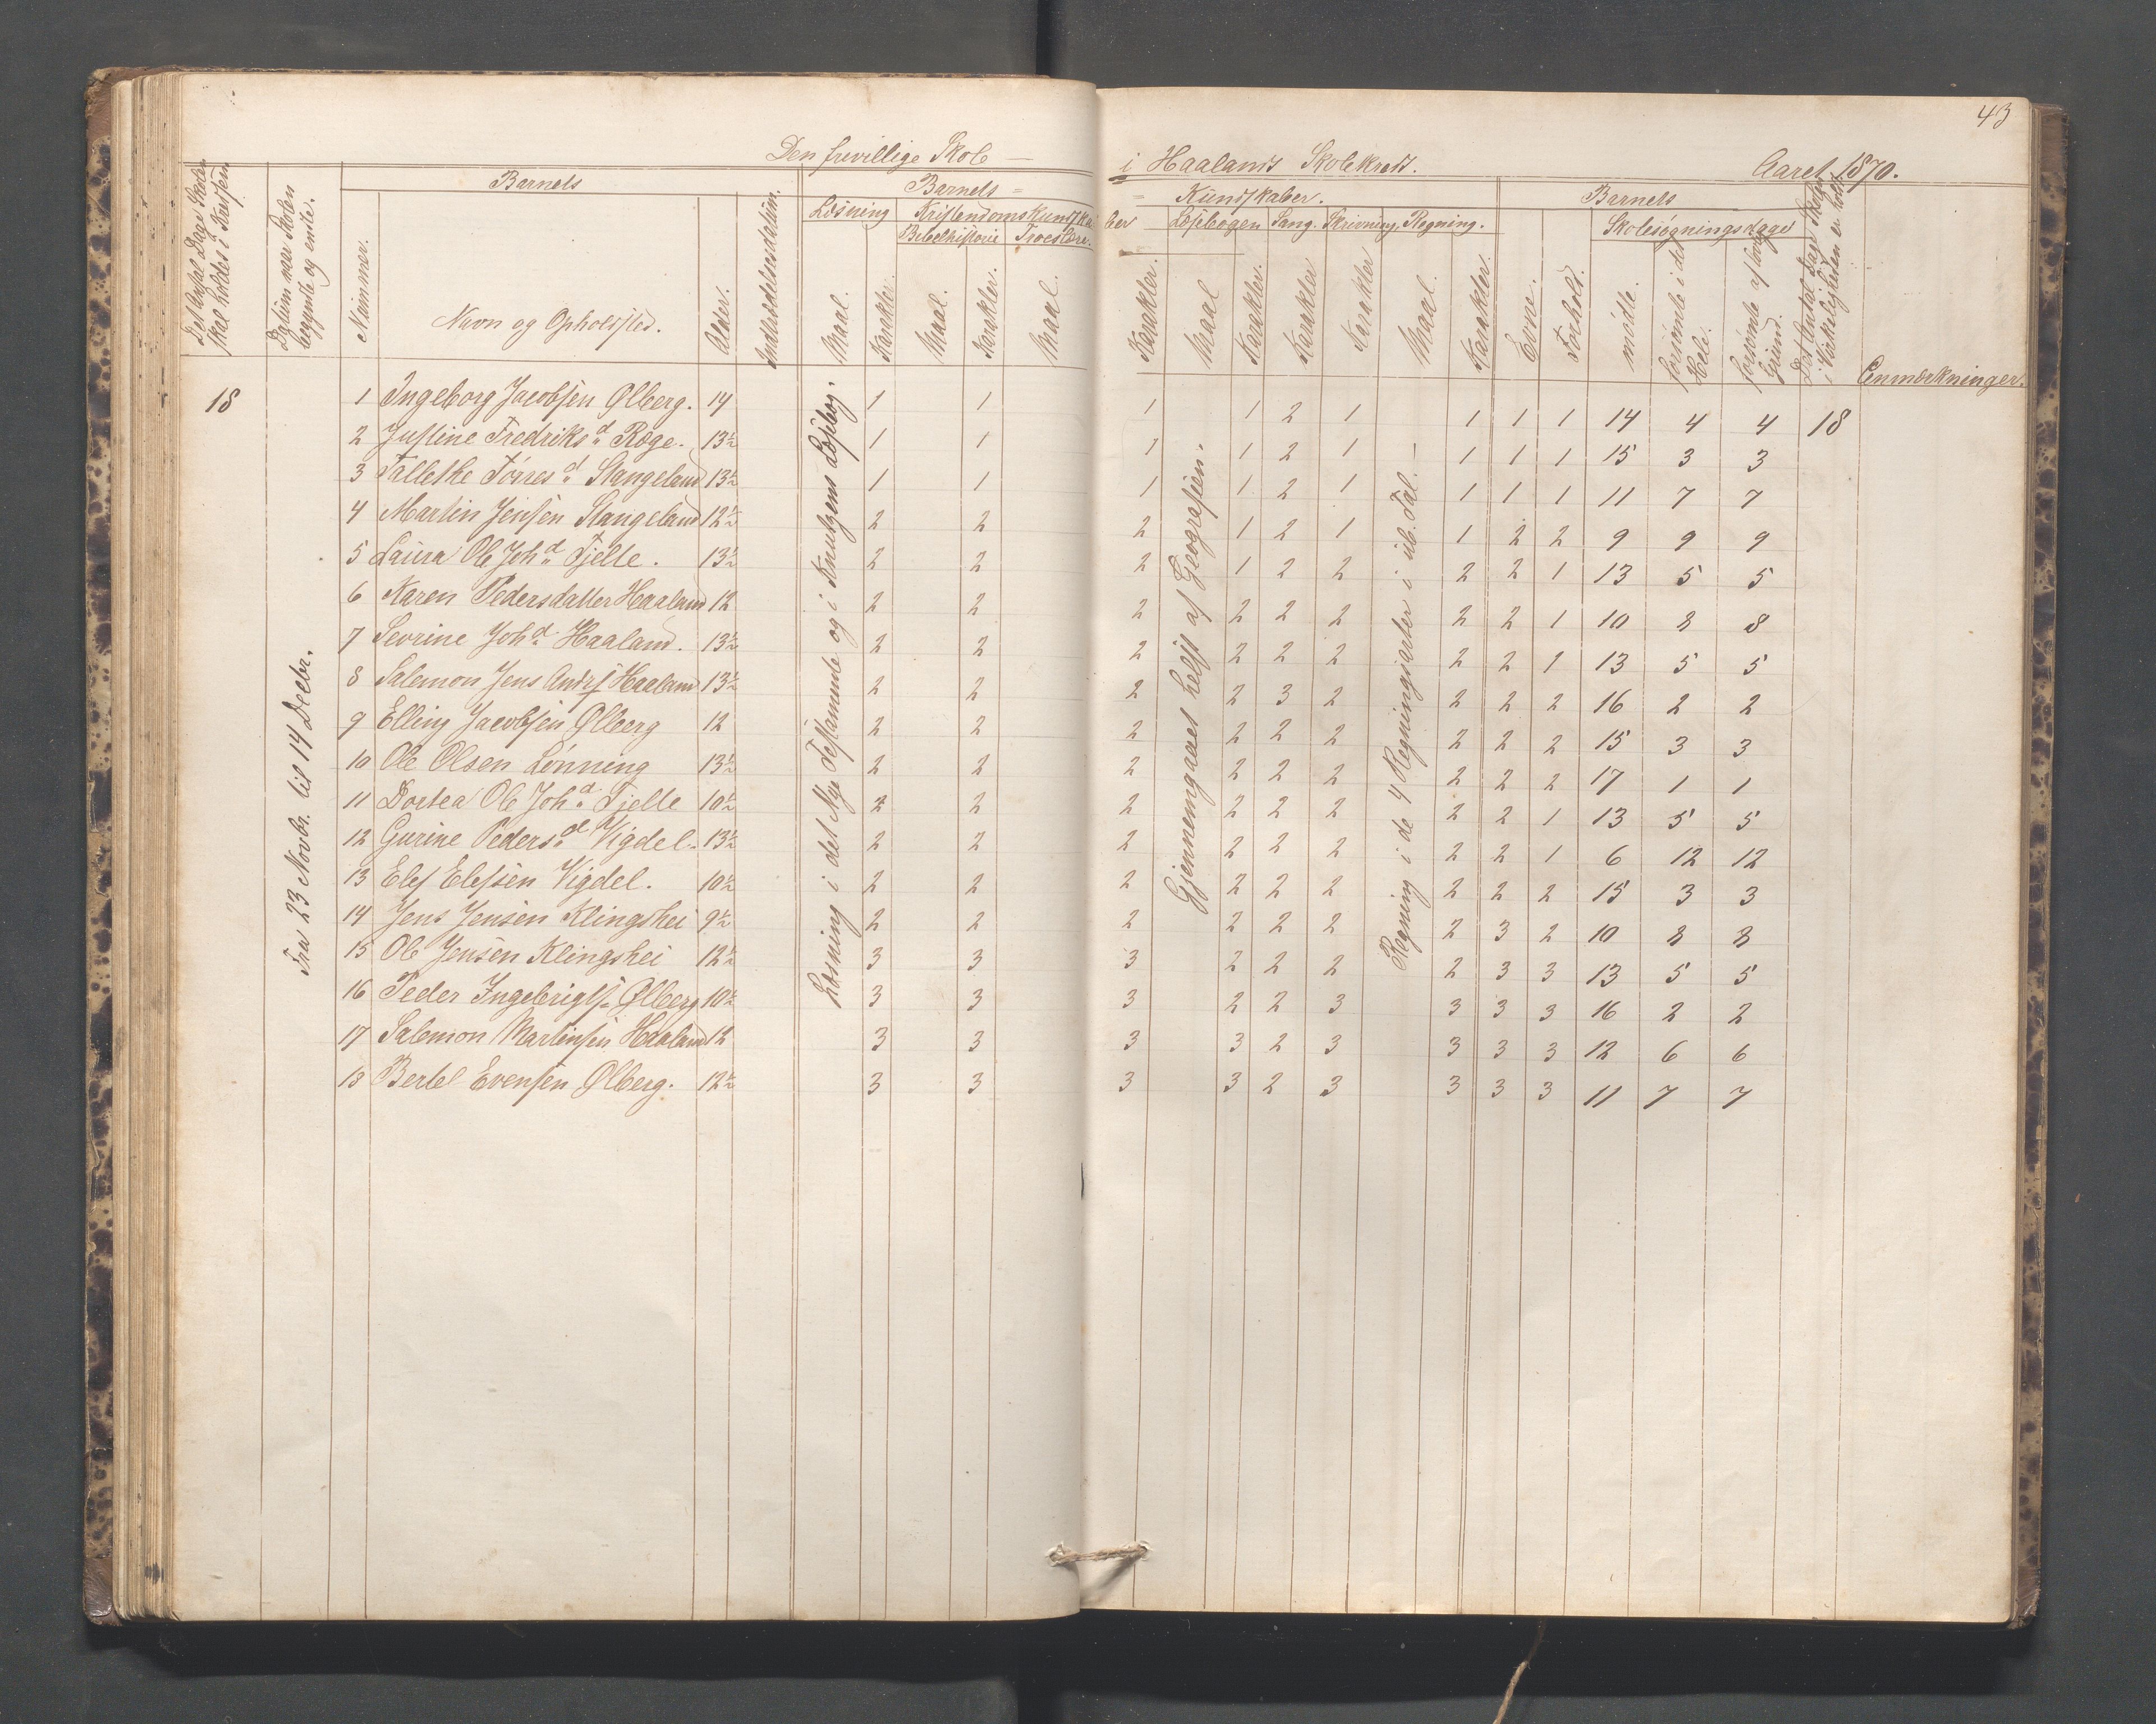 43
Den frivillige Skole — i Haalands Skolekreds. Aaret 1870.
Det Antal Dage Skolen skal holdes i Kredsen
Datum naar Skolen begyndte og endte.
Barnets
Nummer.
Navn og Opholdssted.
Alder.
Indtrædelsesdatum.
Barnets = = Kundskaber.
Læsning
Kristendomskundskaber
Bibelhistorie
Troeslære.
Læsebogen
Sang.
Skrivning.
Regning.
Maal. Karakter. Maal. Karakter. Maal. Karakter. Maal Karakter. Karakter Karakter Maal. Karakter.
Barnets
Evne. Forhold.
Skolesøgningsdage
mødte.
forsømte i det Hele.
forsømte af lovl. Grund.
Det Antal Dage Skolen i Virkeligheden er holdt
Anmærkninger.
18
Fra 23 Novbr. til 14 Decbr.
Læsning i det Nye Testamente og i Knutzens Læsebog.
Gjennemgaaet helst af Geografien.
Regning i de 4 Regningsarter i ub. Tal. —
1 Ingeborg Jacobsen Ølberg. 14 1 1 1 1 2 1 1 1 1 14 4 4 18
2 Justine Fredriksd Ræge. 13½ 1 1 1 1 2 1 1 1 1 15 3 3
3 Tallethe Tørresd Stangeland 13½ 1 1 1 1 2 1 1 1 1 11 7 7
4 Martin Jensen Stangeland 12½ 2 2 2 1 2 1 1 2 2 9 9 9
5 Laura Ole Johd Tjelte. 13½ 2 2 2 1 2 2 2 2 1 13 5 5
6 Karen Pedersdatter Haaland 12 2 2 2 2 2 2 2 2 1 10 8 8
7 Sevrine Johd Haaland. 13½ 2 2 2 2 2 2 2 2 1 13 5 5
8 Salemon Jens Andrs Haaland 13½ 2 2 2 2 3 2 2 2 2 16 2 2
9 Elling Jacobsen Ølberg 12 2 2 2 2 2 2 2 2 2 15 3 3
10 Ole Olsen Lønning 13½ 2 2 2 2 2 2 2 2 2 17 1 1
11 Dortea Ole Johd Tjelte 10½ 2 2 2 2 2 2 2 2 1 13 5 5
12 Gurine Pedersd Vigdel. 13½ 2 2 2 2 2 2 2 2 1 6 12 12
13 Elef Elefsen Vigdel. 10½ 2 2 2 2 2 2 2 2 2 15 3 3
14 Jens Jensen Klingshei 9½ 2 2 2 2 2 2 2 3 2 10 8 8
15 Ole Jensen Klingshei 12½ 3 3 3 2 2 2 2 3 3 13 5 5
16 Peder Ingebrigts. Ølberg 10½ 3 3 3 2 2 3 3 3 3 16 2 2
17 Salemon Martinsen Haaland 12 3 3 3 3 2 3 3 3 3 12 6 6
18 Bertel Evensen Ølberg. 12½ 3 3 3 3 2 3 3 3 3 11 7 7